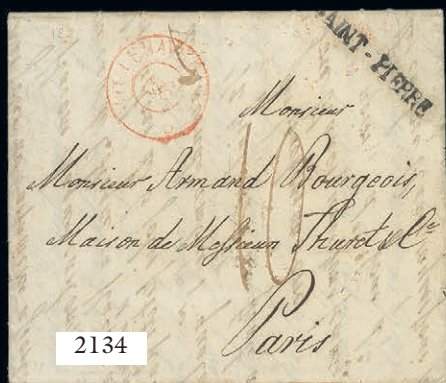 SAINT-PIERRE
Monsieur
Monsieur Armand Bourgeois,
Maison de Messieurs Thuret & Ce
10
Paris
2134